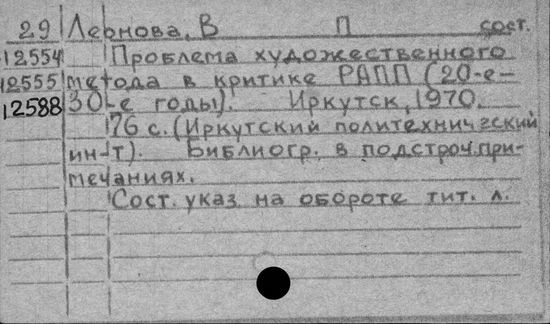 29 Лернова, В П сост.
12554 Проблема художественного
12555 метода в критике РАПП (20-е-
12588 30-е годы). Иркутск, 1970.
176 с. (Иркутский политехнический
ин-т). Библиогр. в подстроч. при-
мечаниях.
Сост. указ. на обороте тит. л.